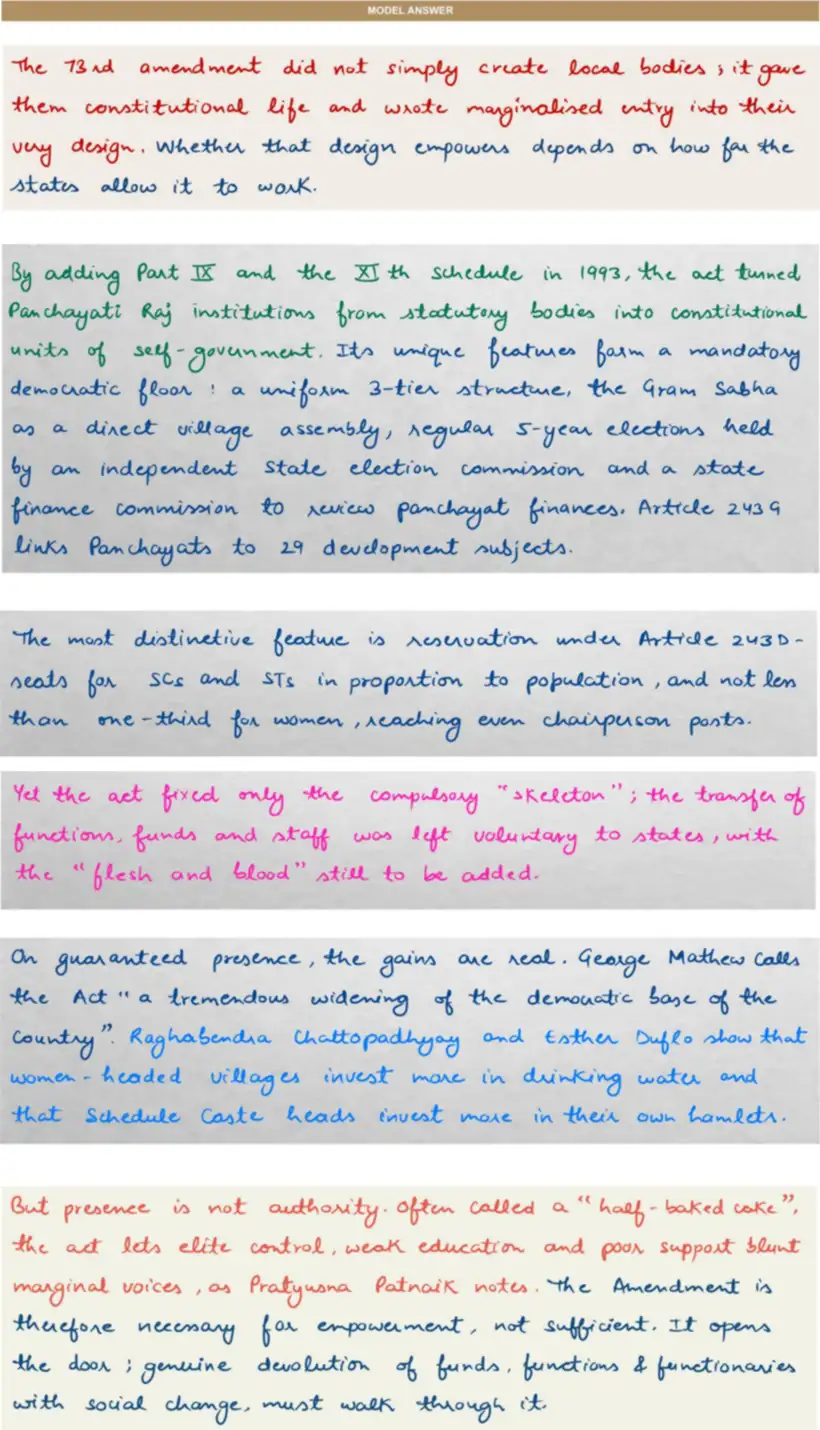 MODEL ANSWER
The 73rd amendment did not simply create local bodies ; it gave
them constitutional life and wrote marginalised entry into their
very design. Whether that design empowers depends on how far the
states allow it to work.
By adding Part IX and the XI th schedule in 1993, the act turned
Panchayati Raj institutions from statutory bodies into constitutional
units of self-government. Its unique features form a mandatory
democratic floor : a uniform 3-tier structure, the Gram Sabha
as a direct village assembly, regular 5-year elections held
by an independent State election commission and a state
finance commission to review panchayat finances. Article 243G
links Panchayats to 29 development subjects.
The most distinctive feature is reservation under Article 243D-
seats for SCs and STs in proportion to population, and not less
than one-third for women, reaching even chairperson posts.
Yet the act fixed only the compulsory "skeleton"; the transfer of
functions, funds and staff was left voluntary to states, with
the "flesh and blood" still to be added.
On guaranteed presence, the gains are real. George Mathew calls
the Act "a tremendous widening of the democratic base of the
Country". Raghabendra Chattopadhyay and Esther Duflo show that
women-headed villages invest more in drinking water and
that Schedule Caste heads invest more in their own hamlets.
But presence is not authority. Often called a "half-baked cake",
the act lets elite control, weak education and poor support blunt
marginal voices, as Pratyusna Patnaik notes. The Amendment is
therefore necessary for empowerment, not sufficient. It opens
the door ; genuine devolution of funds, functions & functionaries
with social change, must walk through it.